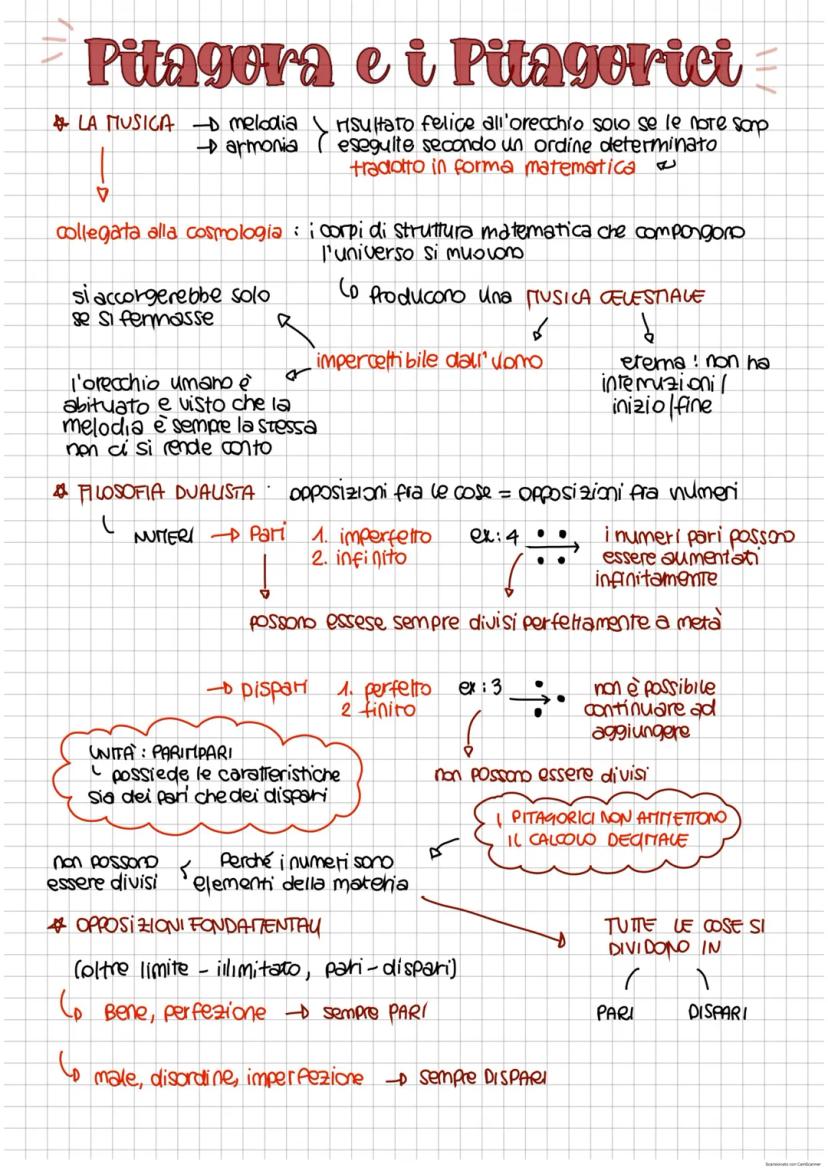 Pitagora e i Pitagorici
LA MUSICA → melodia
→ armonia
risultato felice all'orecchio solo se le note sono
eseguite secondo un ordine determinato
tradotto in forma matematica
collegata alla cosmologia : i corpi di struttura matematica che compongono
l'universo si muovono
↳ Producono una MUSICA CELESTIALE
si accorgerebbe solo
se si fermasse
impercettibile dall'uomo
eterna : non ha
interruzioni /
inizio / fine
l'orecchio umano è
abituato e visto che la
melodia è sempre la stessa
non ci si rende conto
FILOSOFIA DUALISTA : opposizioni fra le cose = opposizioni fra numeri
NUMERI → Pari 1. imperfetto
2. infinito
ex: 4
i numeri pari possono
essere aumentati
infinitamente
possono essese sempre divisi perfettamente a metà
→ Dispari 1. perfetto
2 finito
ex : 3
non è possibile
continuare ad
aggiungere
non possono essere divisi
UNITÀ : PARIMPARI
possiede le caratteristiche
sia dei pari che dei dispari
I PITAGORICI NON AMMETTONO
IL CALCOLO DECIMALE
non possono
essere divisi
Perché i numeri sono
elementi della materia
OPPOSIZIONI FONDAMENTALI
(oltre limite - illimitato, pari - dispari)
Bene, perfezione → sempre PARI
male, disordine, imperfezione → sempre DISPARI
TUTTE LE COSE SI
DIVIDONO IN
PARI DISPARI
Scansionato con CamScanner